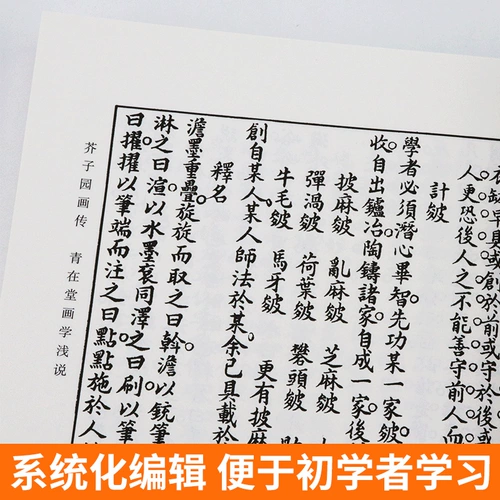 具或創於前或守於後或
人更恐後人之不能善守前人
計皴
學者必須潛心畢智先功某一家皴
收自出鑪冶陶鑄諸家自成一家後
披麻皴 亂麻皴 芝麻皴
彈渦皴 荷葉皴 礬頭皴
牛毛皴 馬牙皴 更有披麻
創自某人某人師法於某余已具載於
釋名
澹墨重疊旋旋而取之曰斡澹以銃筆
淋之曰渲以水墨袞同澤之曰刷以筆
曰擢擢以筆端而注之曰點點施於人
芥子园画传 青在堂画学浅说
系统化编辑 便于初学者学习